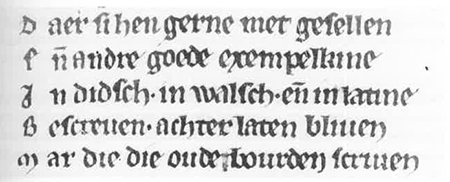 D aer si hen gerne met gesellen
E ñ andre goede exempelkine
I n didsch· in walsch· eñ in latine
B escreuen· achter laten bliuen
M ar die die oude bourden scriuen